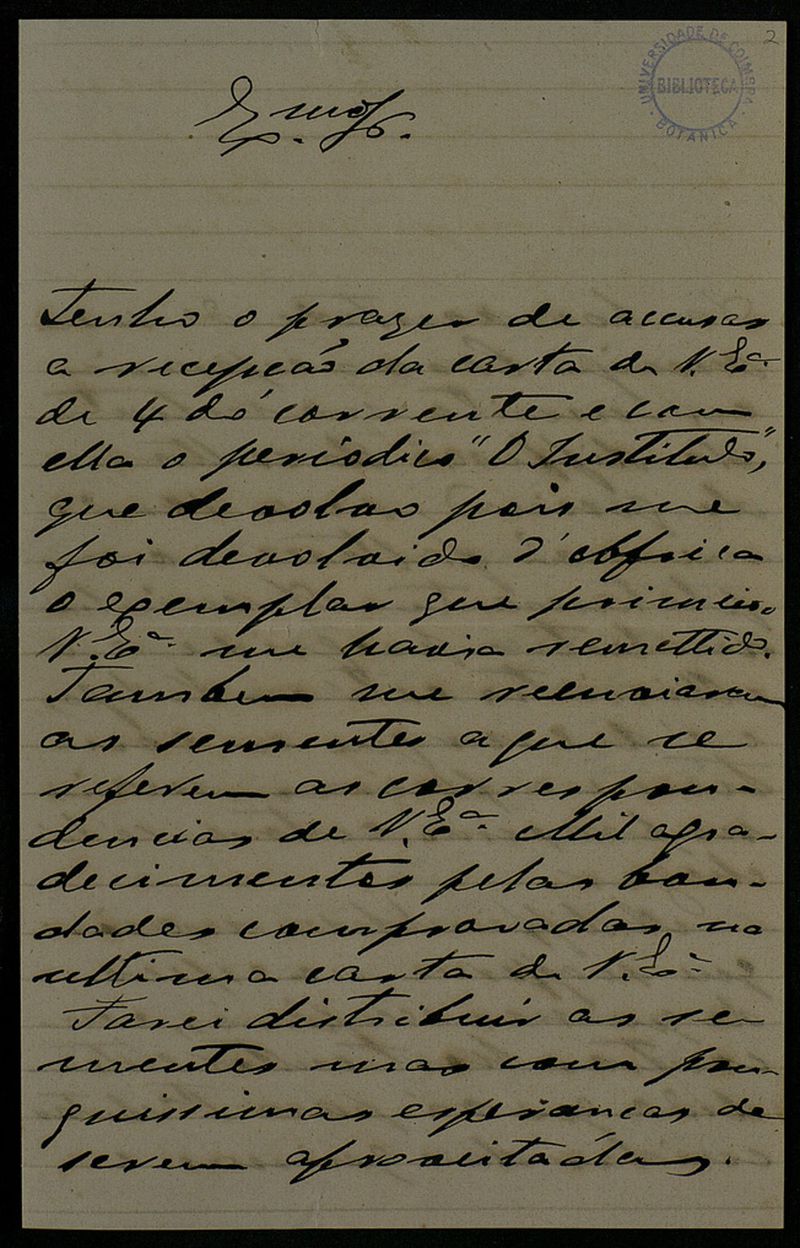 2
UNIVERSIDADE DE COIMBRA
BIBLIOTECA
BOTANICA
Exmo Sr.
Tenho o prazer de accusar
a recepção da carta de V. Exª
de 4 do corrente e com
ella o periodico "O Instituto",
que devolvo pois me
foi devolvido d'Africa
o exemplar que primeiro
V. Exª me havia remettido.
Tambem me reenviaram
as sementes a que se
referem as correspon-
dencias de V. Exª. Mil agra-
decimentos pelas bon-
dades comprovadas na
ultima carta de V. Exª
Farei distribuir as se-
mentes mas com pou-
quissimas esperanças de
serem aproveitadas.